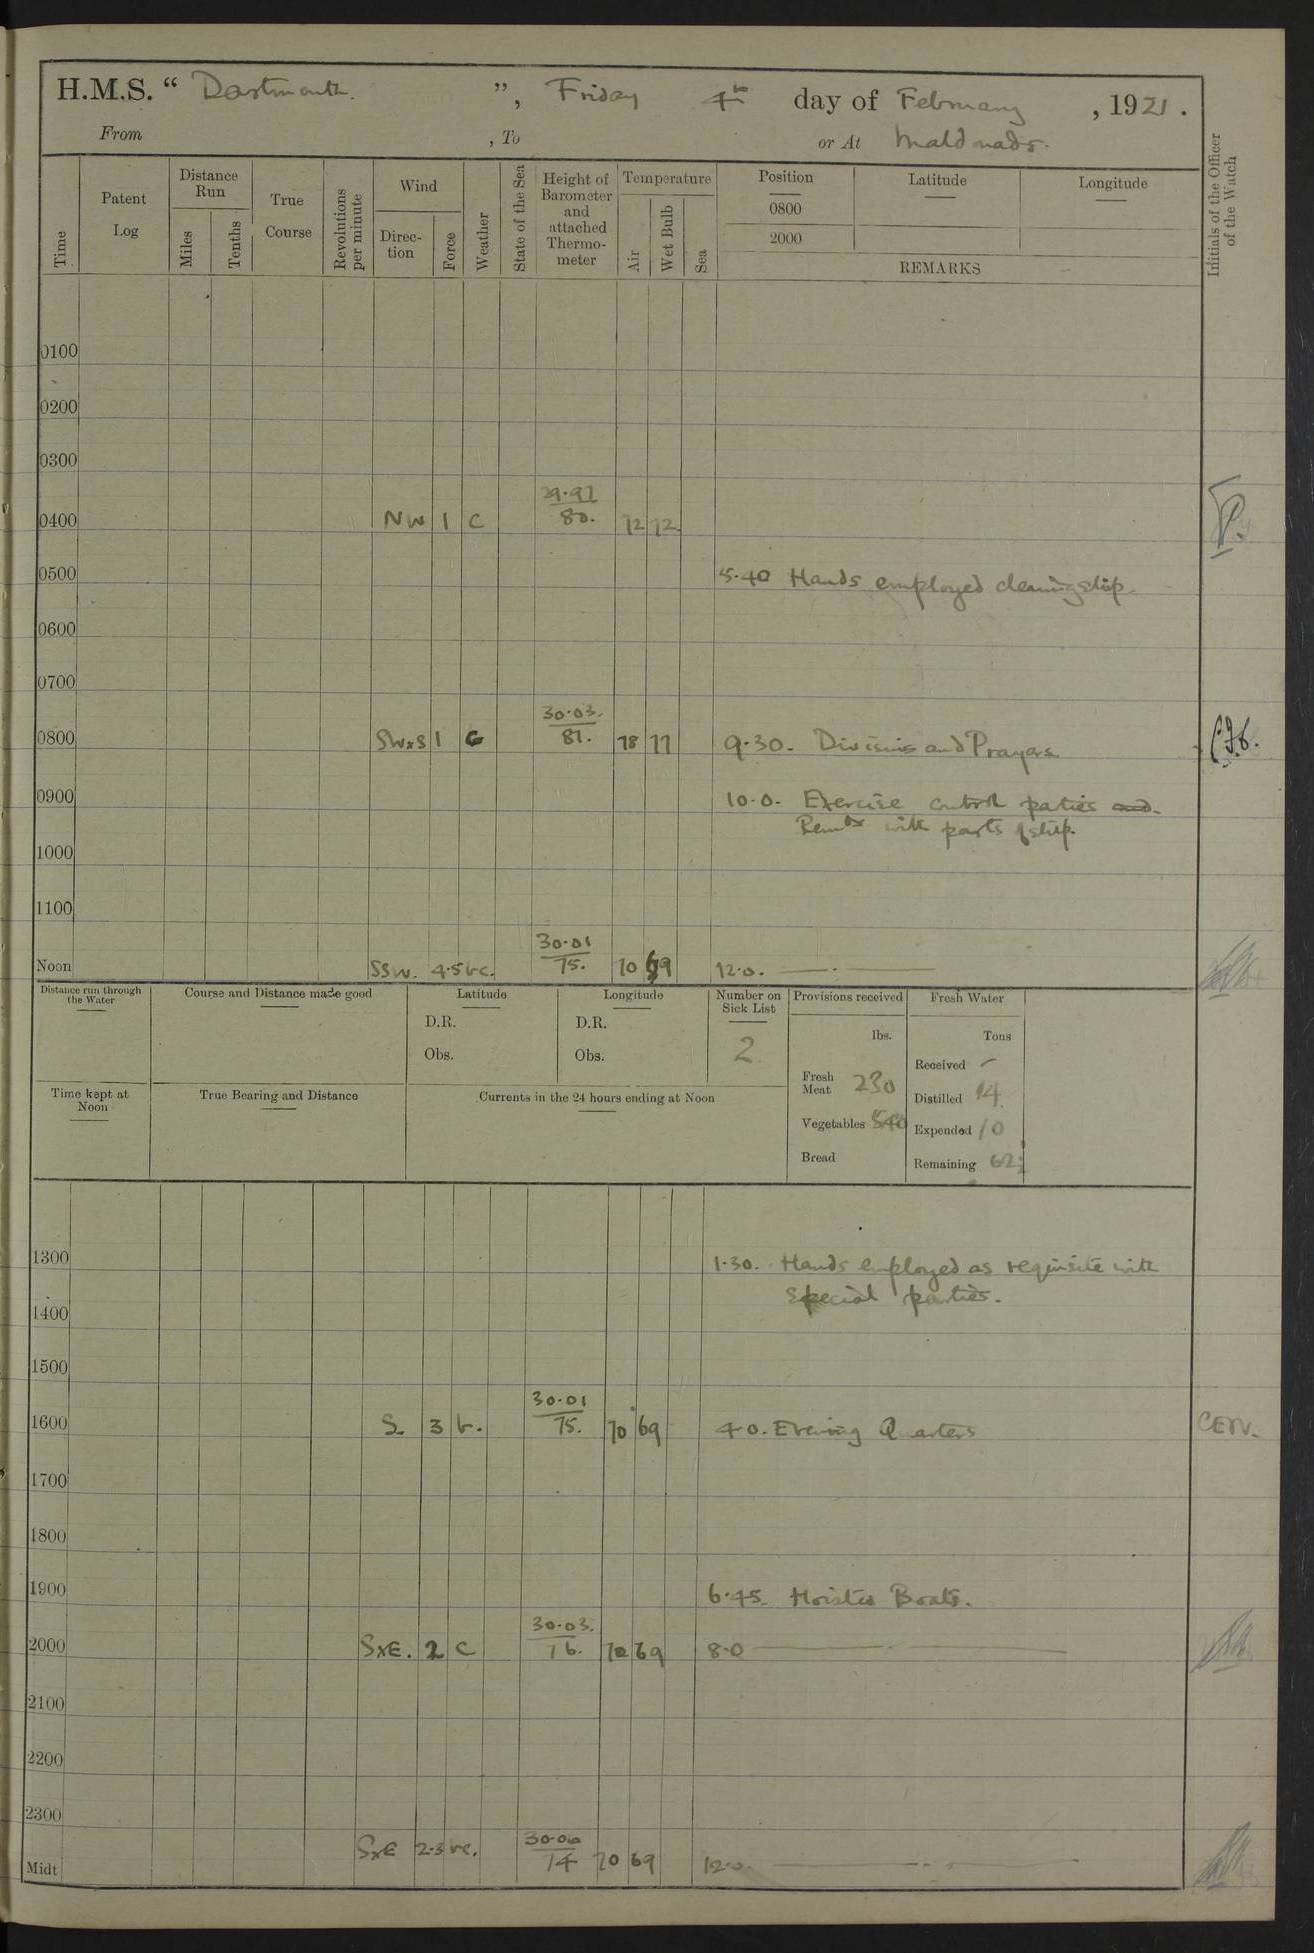 H.M.S. “ Dartmouth. ”, Friday 4th day of February , 1921 .
From , To or At Maldonado.
Time
Patent Log
Distance Run
Miles
Tenths
True Course
Revolutions per minute
Wind
Direc-tion
Force
Weather
State of the Sea
Height of Barometer and attached Thermo-meter
Temperature
Air
Wet Bulb
Sea
Position
0800
2000
Latitude
Longitude
REMARKS
Initials of the Officer of the Watch
0100
0200
0300
29.97
0400 NW 1 C 80. 72 72 P.
0500 5.40 Hands employed cleaning ship.
0600
0700
30.03.
0800 SWxS 1 C 81. 78 77 9.30. Divisions and Prayers
0900 10.0. Exercise control parties and.
Remdr with parts of ship.
1000
1100
30.01
Noon SSW. 4.5 bc. 75. 70 69 12.0.
Distance run through the Water
Course and Distance made good
Latitude
D.R.
Obs.
Longitude
D.R.
Obs.
Number on Sick List
2
Provisions received
lbs.
Fresh Meat 230
Vegetables 540
Bread
Fresh Water
Tons
Received -
Distilled 14
Expended 10
Remaining
Time kept at Noon
True Bearing and Distance
Currents in the 24 hours ending at Noon
1300 1.30. Hands employed as requisite with
special parties.
1400
1500
30.01
1600 S. 3 b. 75. 70 69 4.0. Evening Quarters
1700
1800
1900 6.45. Hoisted Boats.
30.03.
2000 SxE. 2 C 76. 70 69 8.0
2100
2200
2300
30.06
Midt SxE 2.3 bc. 74 70 69 12.0.